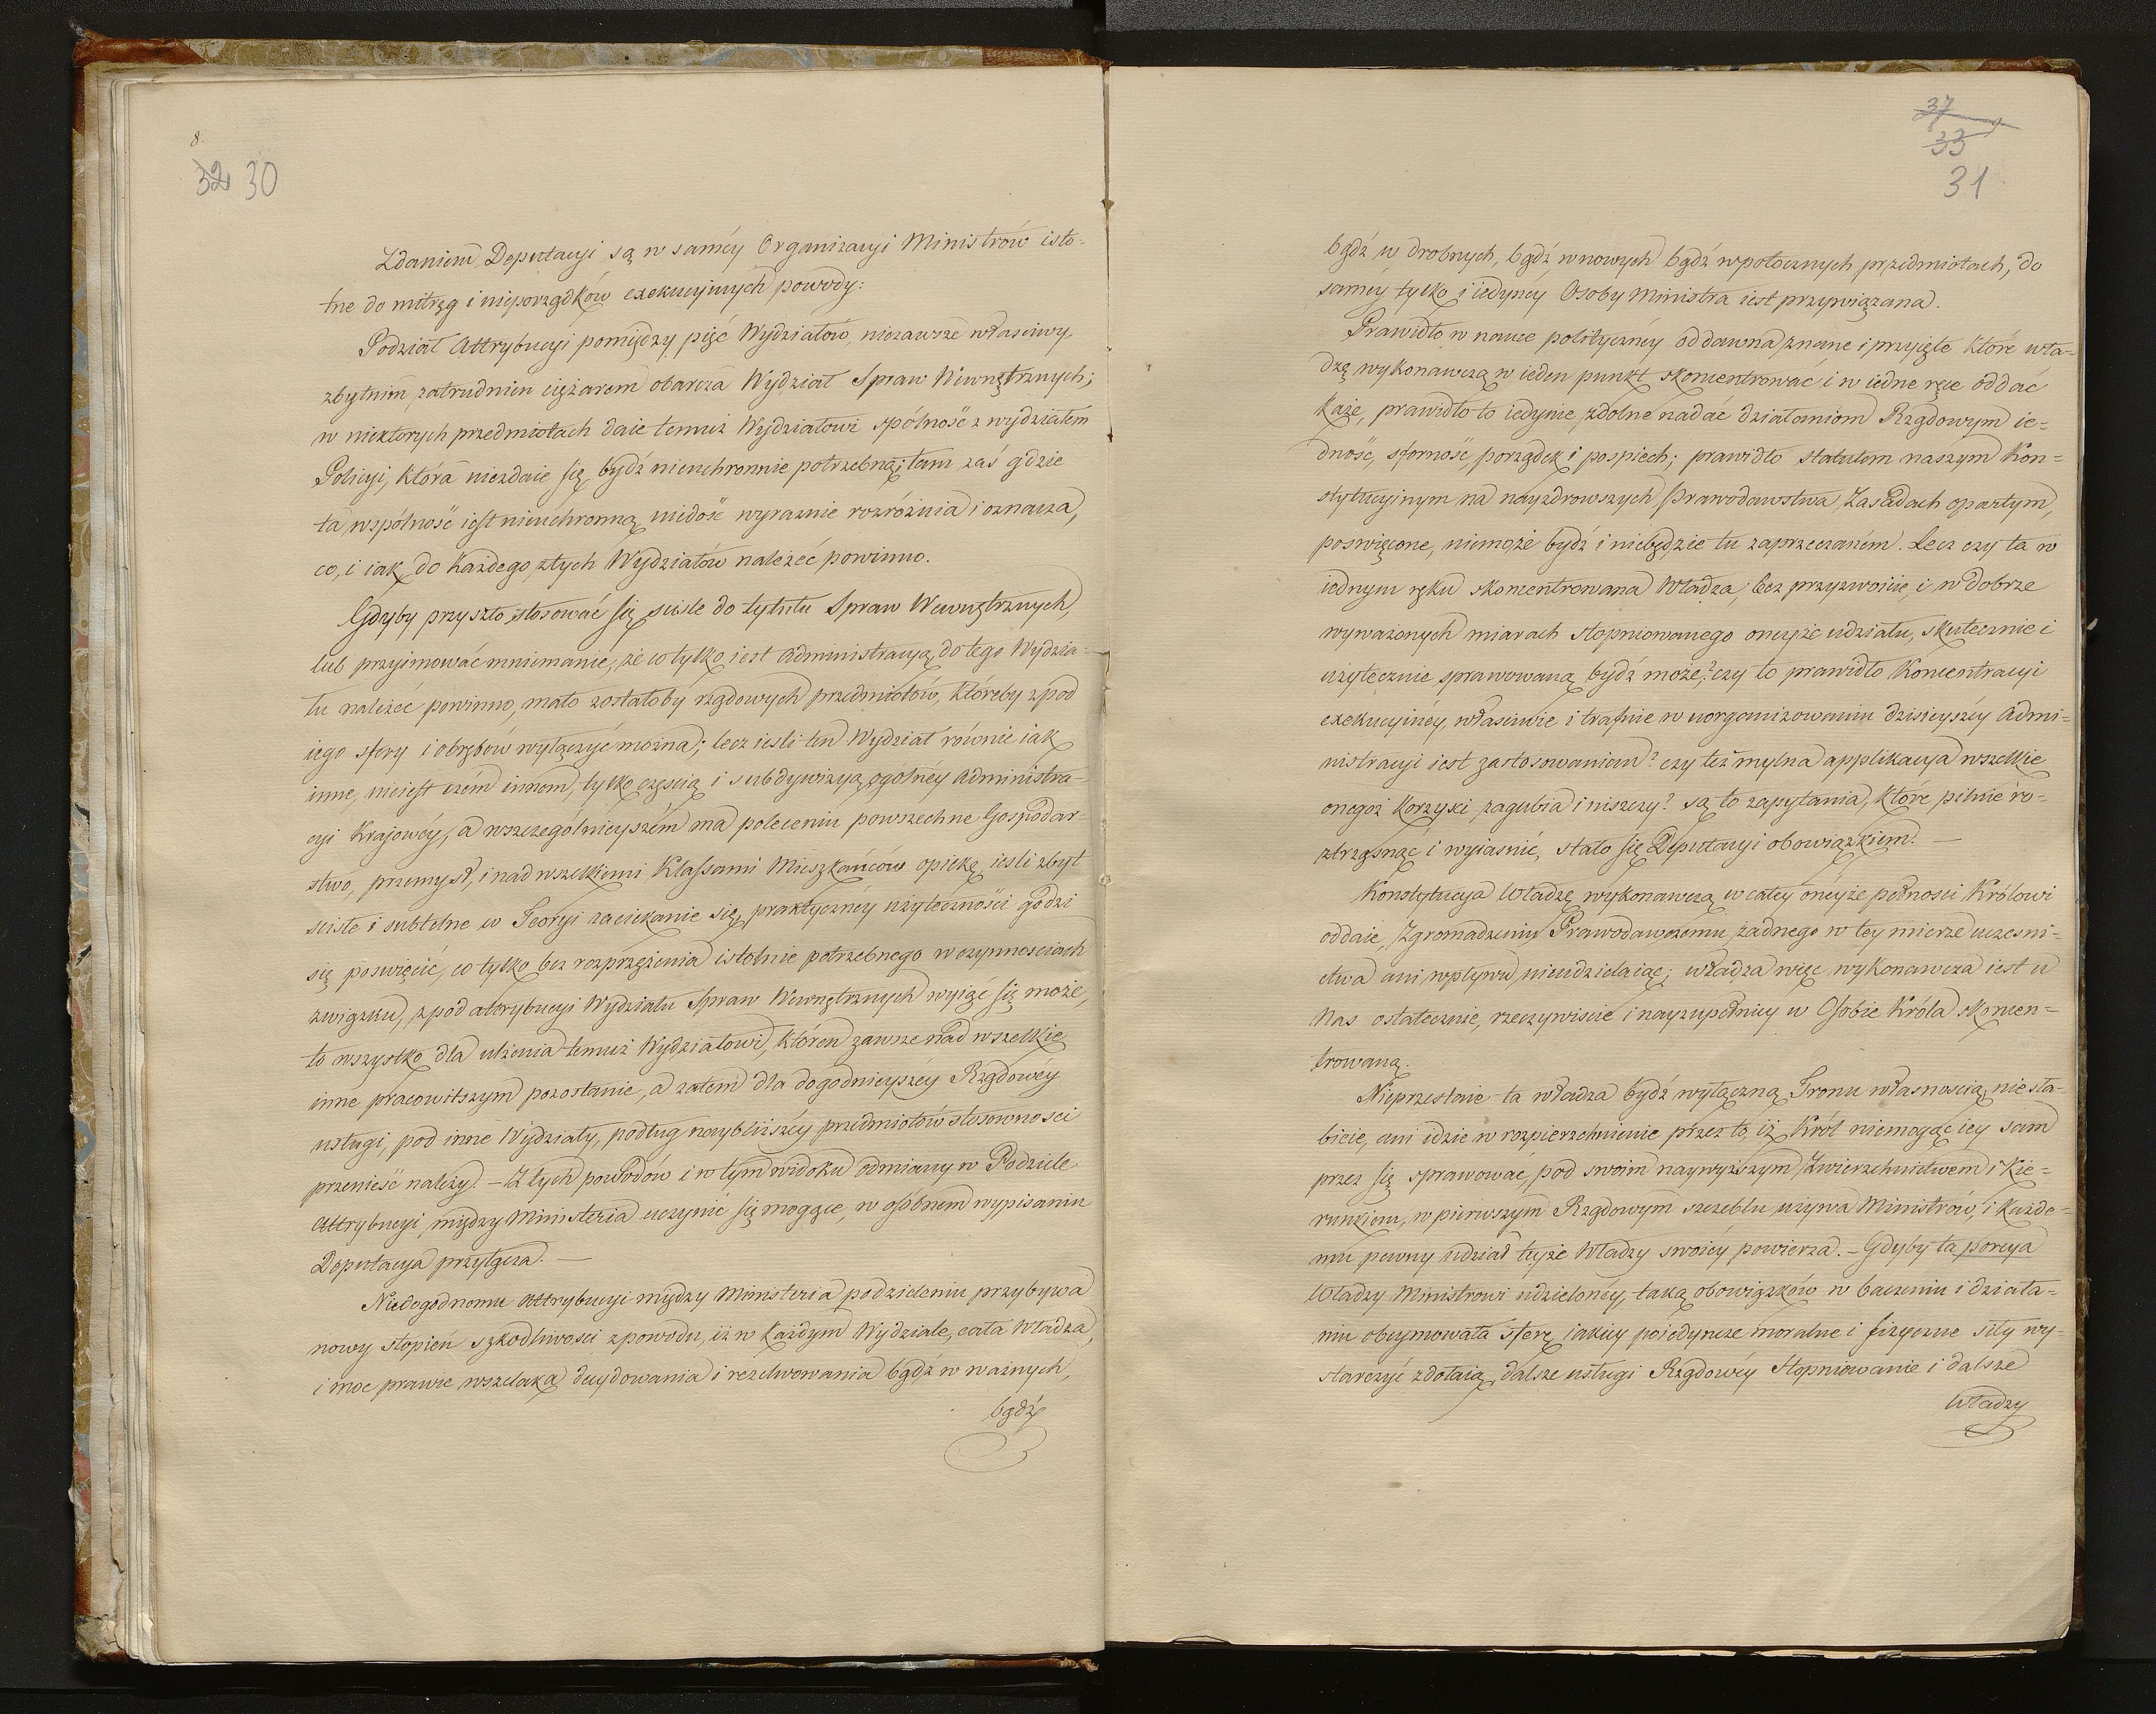 8.
32 30
Zdaniem Deputacyi są w saméy Organizacyi Ministrów isto-
tne do mitręg i nieporządków exekucyinych powody:
Podział Attrybucyi pomiędzy pięć Wydziałów, niezawsze właściwy
zbytnim zatrudnień ciężarem obarcza Wydział Spraw Wewnętrznych;
w niektorych przedmiotach daie temuż Wydziałowi spólność z wydziałem
Policyi, która niezdaie się bydź nieuchronnie potrzebną; tam zaś gdzie
ta wspólność iest nieuchronną, niedość wyraznie rozróżnia i oznacza,
co, i iak do każdego z tych Wydziałów należeć powinno.
Gdyby przyszło stosować się scisle do tytułu Spraw Wewnętrznych,
lub przyimować mniemanie, że co tylko iest Administracyą, do tego Wydzia-
łu należeć powinno, mało zostałoby rządowych przedmiotów, któreby z pod
iego sfery i obrębów wyłączyć można; lecz iesli ten Wydział równie iak
inne, nieiest czém inném, tylko częscią i subdywizyą ogólnéy Administra-
cyi Kraiowéy, a wszczególnieyszém ma poleceniu powszechne Gospodar-
stwo, przemysł, i nad wszelkiemi Klassami Mieszkańców opiekę, iesli zbyt
scisłe i subtelne w Teoryi zaciekanie się, praktycznéy użyteczności godzi
się poswięcić, co tylko bez rozprzężenia istotnie potrzebnego w czynnosciach
związku, z pod attrybucyi Wydziału Spraw Wewnętrznych wyiąć się może,
to wszystko dla ulżenia temuż Wydziałowi, któren zawsze nad wszelkie
inne pracowitszym pozostanie, a zatem dla dogodnieyszéy Rządowéy
usługi, pod inne Wydziały, podług naybliższéy przedmiotów stosownosci
przenieść należy. – Z tych powodów i w tym widoku odmiany w Podziele
Attrybucyi między Ministeria uczynić się mogące, w osobnem wypisaniu
Deputacya przyłącza. —
Niedogodnemu Attrybucyi między Ministeria podzieleniu przybywa
nowy stopień szkodliwosci z powodu, iż w każdym Wydziale, cała Władza,
i moc prawie wszelaka decydowania i rezolwowania bądź w ważnych,
bądź
37
33
31
bądź w drobnych, bądź w nowych bądź w potocznych przedmiotach, do
saméy tylko i iedyney Osoby Ministra iest przywiązana.
Prawidło w nauce polityczney oddawna znane i przyięte które wła-
dzę wykonawczą w ieden punkt skoncentrować i w iedne ręce oddać
każe, prawidło to iedynie zdolne nadać działaniom Rządowym ie-
dność, sforność, porządek i pospiech; prawidło statutem naszym Kon-
stytucyinym na nayzdrowszych Prawodawstwa Zasadach opartym,
poswięcone, niemoże bydź i niebędzie tu zaprzeczaném. Lecz czy ta w
iednym ręku skoncentrowana Władza, bez przyzwoicie, i w dobrze
wyważonych miarach stopniowanego oneyże udziału, skutecznie i
użytecznie sprawowaną bydź może? czy to prawidło koncentracyi
exekucyinéy, własciwie i trafnie w uorganizowaniu dzisieyszéy Admi-
nistracyi iest zastosowaniem? czy też mylna applikacya wszelkie
onegoż korzysci zagubia i niszczy? są to zapytania, które pilnie ro-
ztrząsnąć i wyiasnić, stało się Deputacyi obowiązkiem. —
Konstytucya Władzę wykonawczą w całey onéyże pełnosci Królowi
oddaie, Zgromadzeniu Prawodawczemu żadnego w tey mierze uczesni-
ctwa ani wpływu nieudzielaiąc; władza więc wykonawcza iest u
Nas ostatecznie, rzeczywiscie i nayzupełniey w Osobie Króla skoncen-
trowaną.
Nieprzestaie ta władza bydź wyłączną Tronu własnoscią, nie sła-
bieie, ani idzie w rozpierzchnienie przez to, iż Król niemogąc iey sam
przez się sprawować, pod swoim naywyższym Zwierzchnictwem i kie-
runkiem, w pierwszym Rządowym szczeblu używa Ministrów, i każde-
mu pewny udział teyże Władzy swoiéy powierza. – Gdyby ta porcya
Władzy Ministrowi udzielonéy, taką obowiązków w baczeniu i działa-
niu obeymowała sferę iakiey poiedyncze moralne i fizyczne siły wy-
starczyć zdołaią, dalsze usługi Rządowéy stopniowanie i dalsze
Władzy